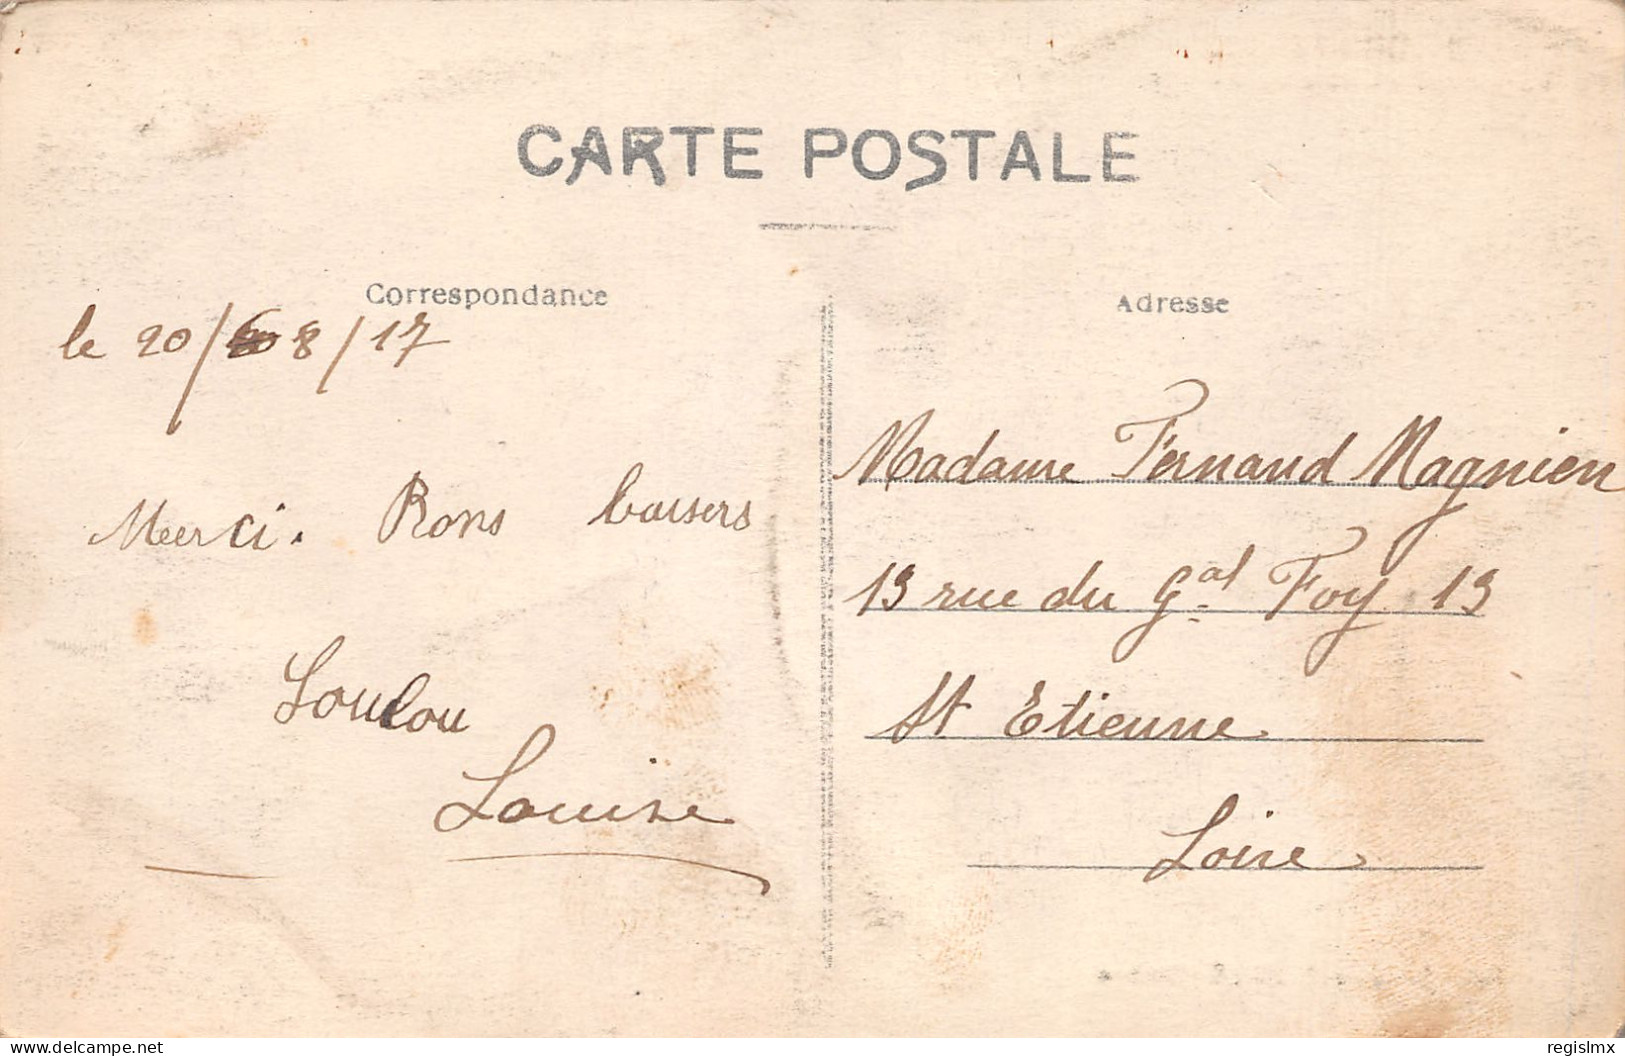 CARTE POSTALE
Correspondance
le 20/8/17
Merci. Bons baisers
Loulou
Louise
Adresse
Madame Fernand Magnien
13 rue du Gal Foy 13
St Etienne
Loire
delcampe.net
regislmx